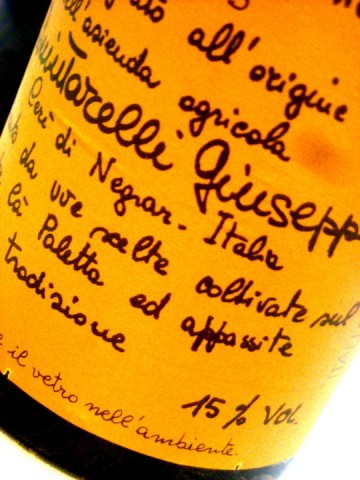 all'origine
all'azienda agricola
Giuseppe
Cerè di Negrar - Italia
da uve scelte coltivate sul
Cà Paletta ed appassite
tradizione
15 % VOL.
il vetro nell'ambiente.